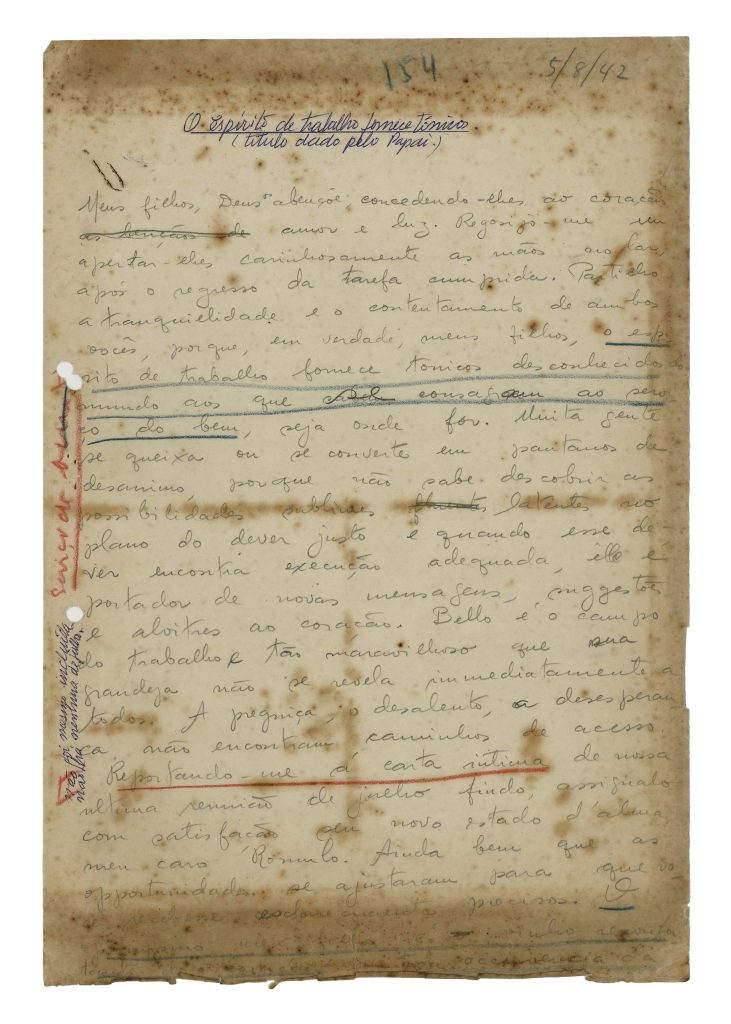 154
5/8/42
O espírito de trabalho fornece tônicos
(título dado pelo Papai.)
Meus filhos, Deus os abençoe, concedendo-lhes ao coração
as benções de amor e luz. Regosijo-me em
apertar-lhes carinhosamente as mãos no lar,
após o regresso da tarefa cumprida. Partilho
a tranquilidade e o contentamento de ambos
vocês, porque, em verdade, meus filhos, o espí-
rito de trabalho fornece tonicos desconhecidos do
mundo aos que consagram ao servi-
ço do bem, seja onde fôr. Muita gente
se queixa ou se converte em pantanos de
desanimo, porque não sabe descobrir as
possibilidades sublimes latentes no
plano do dever justo e quando esse de-
ver encontra execução adequada, elle é
portador de novas mensagens, suggestões
e alvitres ao coração. Bello é o campo
do trabalho e tão maravilhoso que sua
grandeza não se revela immediatamente a
todos. A preguiça, o desalento, a desesperan
ça não encontram caminhos de acesso.
Reportando-me á carta intima de nossa
ultima reunião de julho findo, assignalo
com satisfação seu novo estado d'alma,
meu caro Rômulo. Ainda bem que as
opportunidades se ajustaram para que vo-
cê recebesse esclarecimentos preciosos. O
vinho
occorrencia da
não foi mesmo incluída
não há nenhuma de julho.